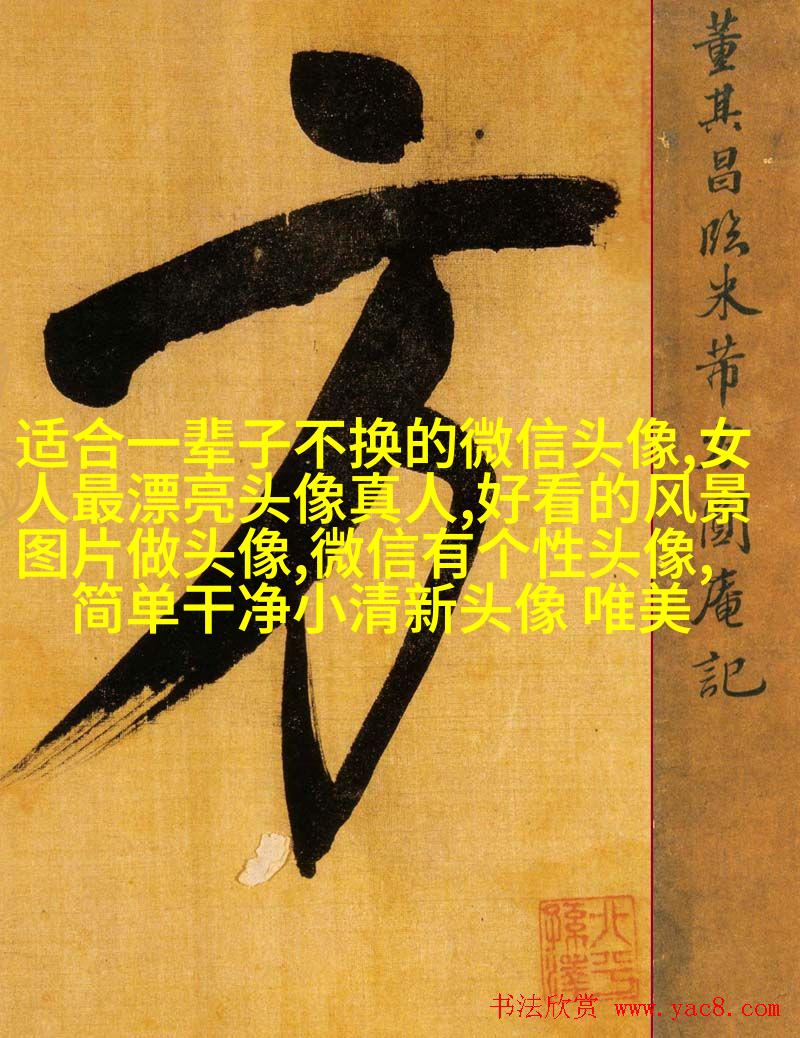 方
董其昌臨米芾方圓庵記
适合一辈子不换的微信头像,女
人最漂亮头像真人,好看的风景
图片做头像,微信有个性头像,
简单干净小清新头像 唯美
书法欣赏 www.yac8.com